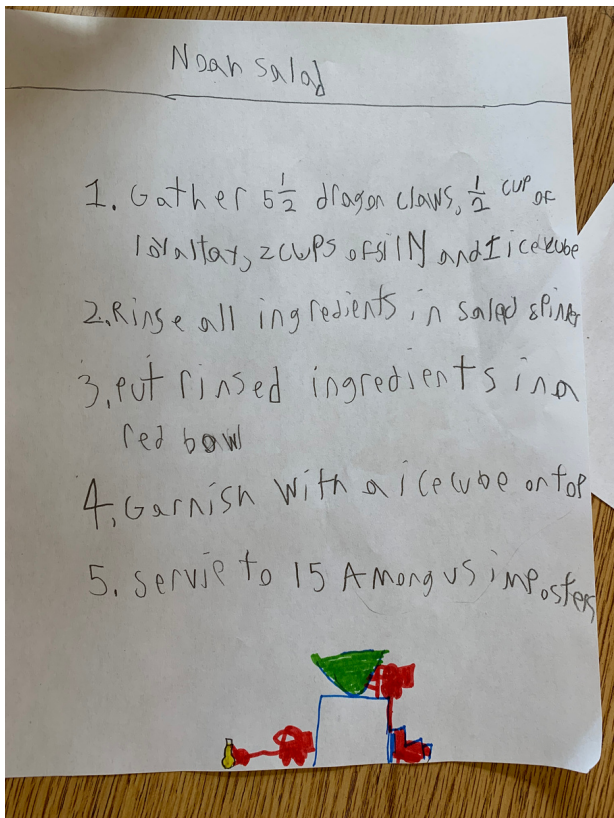 Noah salad
1. Gather 5 1/2 dragon claws, 1/2 cup of
loyaltay, 2 cups of silly and 1 ice cube
2. Rinse all ingredients in salad spiner
3. put rinsed ingredients in a
red bowl
4. Garnish with a ice cube on top
5. servie to 15 Among us imposters